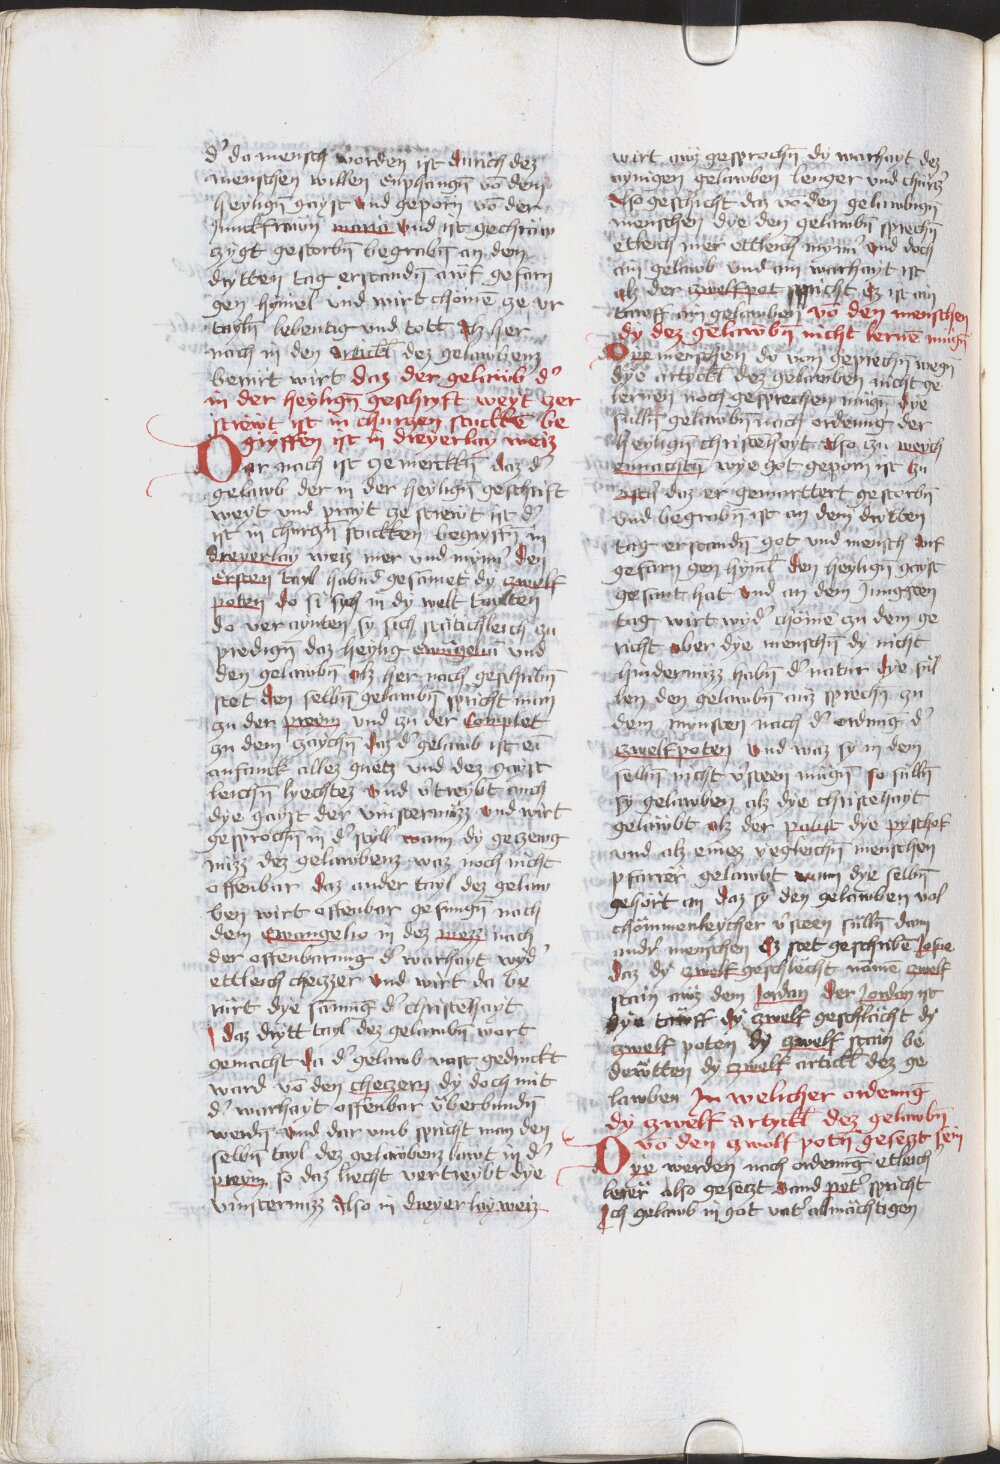 d' da mensch worden ist durich dez
menschen willen Enphangñ võ dem
heyligñ gayst vnd geporñ võ der
Junckfrawñ maria vnd ist gechräw
czygt gestorbñ begrabñ an dem
drytten tag erstandñ awf gefarn
gen hymel vnd wirt chöme ze vr
taylñ lebentig vnd tott Alz her
nach in den Artickl dez gelawbenz
berürt wirt daz der gelaub d'
in der heyligñ geschryft weyt zer
strewt ist in churczen stuckñ be
gryffen ist in dreyerlay weiz
Dar nach ist ze merckñ daz d'
gelawb der in der heyligñ geschrift
weyt vnd prayt ze strewt ist d'
ist in churczñ stucken begryffñ in
dreyerlay weiz mer vnd mynn' den
Ersten tayl habñd gesamet dy zwelf
poten do si sich in dy welt taylten
do veraynten sy sich stätichleich zu
predigñ daz heylig ewangeliũ vnd
den gelawbñ alz her nach geschribñ
stet den selbñ gelawbñ spricht man
zu der preym vnd zu der Complet
zu dem zaychñ daz d' gelawb ist ein
anfanck allez guetz vnd dez gayst
leichñ liechtez vnd v'treybt auch
dye gayst der vinsternüzz vnd wirt
gesprochñ in d' still wann dy geczewg
nuzz dez gelawbenz waz noch nicht
offenbar daz ander tayl dez gelaw
ben wirt offenbar gesungñ nach
dem Ewangelio in dez mezz nach
der offenbarung d' warhayt wyd'
etleich checzzer vnd wirt da be
rürt dye samnũg d' christēhayt
daz drytt tayl dez gelawbñ wart
gemacht da d' gelawb vast gedruckt
ward võ den checzern dy doch mit
d' warhayt offenbar vberbundñ
werdñ vnd dar vmb spricht man den
selbñ tayl dez gelawbenz lawt in d'
preym so daz liecht vertreybt dye
vinsternuzz Also in dreyerlay weiz
wirt auz gesprochñ dy warhayt dez
aynigen gelawben lenger vnd churcz'
Also geschicht daz võ den gelawbigñ
menschen dye den gelawbñ sprechñ
etleich mer ettleich mynn' vnd doch
ain gelawb vnd ain warhayt ist
alz der zwelfpot spricht Ez ist ain
tawff ain gelawben võ den menschen
dy dez gelawbñ nicht lernē mugñ
Dye menschen dy von geprechñ wegñ
dye artyckl dez gelawben nicht ge
lernen noch gesprechen mugñ dye
sullñ gelawbñ nach ordnung der
heyligñ christēheyt Also zu weych
ennachtñ wye got geporn ist zu
Ostñ daz er gemarttert gestorbñ
vnd begrabñ ist an dem drytten
tag erstandñ got vnd mensch Auf
gefarn gen hyml den heyligñ gayst
gesant hat vnd an dem Jungsten
tag wirt wyd' chöme zu dem ge
richt Aber dye menschñ dy nicht
hindernuzz habñ d' natur dye sül
len den gelawbñ auz sprechñ zu
dem mynsten nach d' ordnũg d'
zwelfpoten Vnd waz sy in dem
selbñ nicht v'steen mugñ so sullñ
sy gelawben alz dye christēhayt
gelawbt alz der pabst dye pyschof
vnd alz einez yegleichñ menschen
pfarrer gelawbt wann dye selbñ
gehört an daz sy den gelawben vol
chömmenleycher v'steen sullñ dann
andr' menschen Ez stet geschribē Josue
daz dy zwelf geschlächt namē zwelf
stain auz dem Jordan der Jordan ist
dye tawff dy zwelf geschlächt dy
zwelf poten dy zwelf stain be
dewtten dy zwelf artickl dez ge
lawben In welicher ordenũg
dy zwelf artyckl dez gelawbñ
võ den zwölf potñ gesetzt sein
Dye werden nach ordenũg etleich
lerer also gesetzt Sand pet' spricht
Ich gelawb in got vat' almächtigen